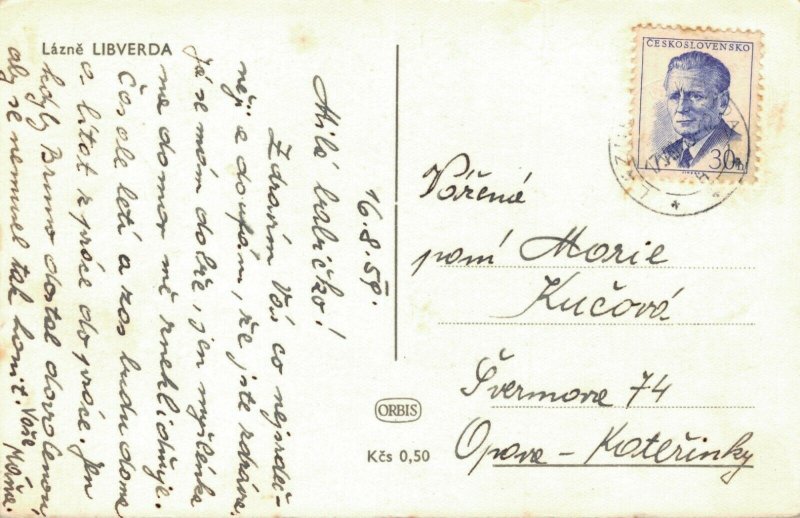 Lázně LIBVERDA
16.8.59.
Milá babičko!
Zdravím Vás co nejsrdeč-
něji a doufám, že jste zdráva.
Já se mám dobře, jen myšlenka
na domov mě zneklidňuje.
Čas letí a zas budu doma
a lítat z práce do práce. Jen
kdyby Bruno dostal dovolenou,
aby se nemusel tak honit. Vaše
Máňa.
ČESKOSLOVENSKO
30h
Vážená
paní Marie
Kučová
Švermova 74
Opava - Kateřinky
ORBIS
Kčs 0,50